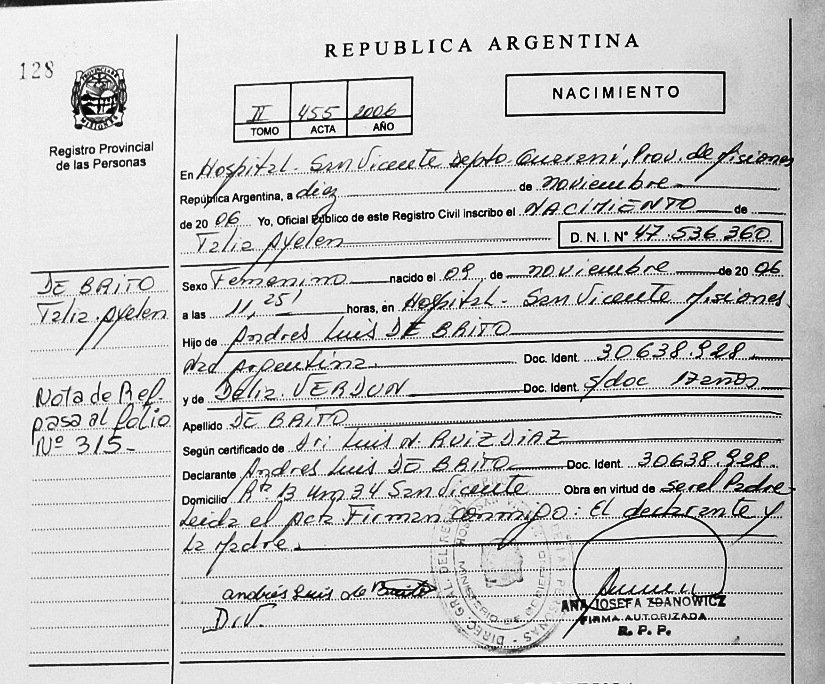 128
REPUBLICA ARGENTINA
Registro Provincial
de las Personas
II 455 2006
TOMO ACTA AÑO
NACIMIENTO
En Hospital - San Vicente Depto. Guaraní, Prov. de Misiones
República Argentina, a diez de noviembre
de 2006 Yo, Oficial Público de este Registro Civil inscribo el NACIMIENTO de
Taliz Ayelen D.N.I. Nº 47.536.360
Sexo Femenino nacido el 09 de noviembre de 2006
a las 11,25' horas, en Hospital - San Vicente Misiones
Hijo de Andres Luis DE BRITO
Argentina Doc. Ident. 30638.928
y de Daliz VERDUN Doc. Ident. s/doc 17 años
Apellido DE BRITO
Según certificado de Dr. Luis N. RUIZ DIAZ
Declarante Andres Luis DE BRITO Doc. Ident. 30638.928
Domicilio 13 Km 34 San Vicente Obra en virtud de ser el Padre
Leida el acta Firman conmigo: El declarante y
la Madre.
andrés Luis de Brito
D.V.
ANA JOSEFA ZDANOWICZ
FIRMA AUTORIZADA
R. P. P.
DE BRITO
Taliz Ayelen
Nota de Ref.
pasa al folio
Nº 315-